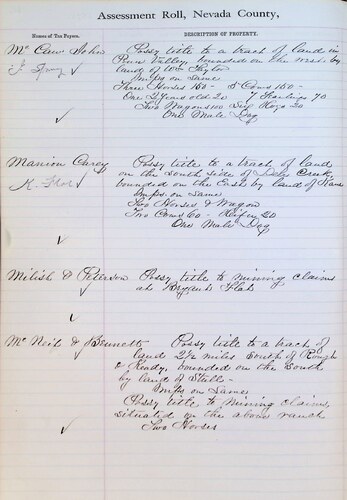 Assessment Roll, Nevada County,
Names of Tax Payers.
DESCRIPTION OF PROPERTY.
Mc Caw John Possy title to a tract of land in
Penn Valley, bounded on the west by
land of Wm Taylor
Imps on Same
Three Horses 150 - 8 Cows 160 -
One 2 Years old 20 7 Yearlings 70
Two Wagons 100 Six Hogs 30
One Male Dog
Manion Carey Possy title to a tract of land
on the South side of Deer Creek
bounded on the East by land of
K. Flat
Imps on Same
Two Horses & Wagon
Two Cows 60 - Heifer 20
One Male Dog
Milish & Peterson Possy title to mining claims
at Bryants Flat
Mc Neil & Bennett Possy title to a tract of
land 2½ miles South of Rough
& Ready, bounded on the South
by land of Stell -
Imps on Same
Possy title to Mining claims,
situated on the above ranch
Two Horses